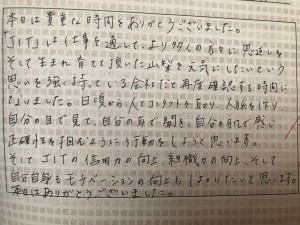 本日は貴重な時間をありがとうございました。
「JIT」は仕事を通してより多くの方々に恩返しを
そして生まれ育てて頂いた山梨を元気にしたいという
思いを強く持っている会社だと再度確認する時間に
なりました。日頃から人とコンタクトを取り、人脈を作り
自分の目で見て、自分の耳で聞き、自分の肌で感じ
正確性を見出すように行動をしようと思います。
そしてJITの信用力の向上、組織力の向上、そして
自分自身もモチベーションの向上もしよりたいと思います。
本日はありがとうございました。